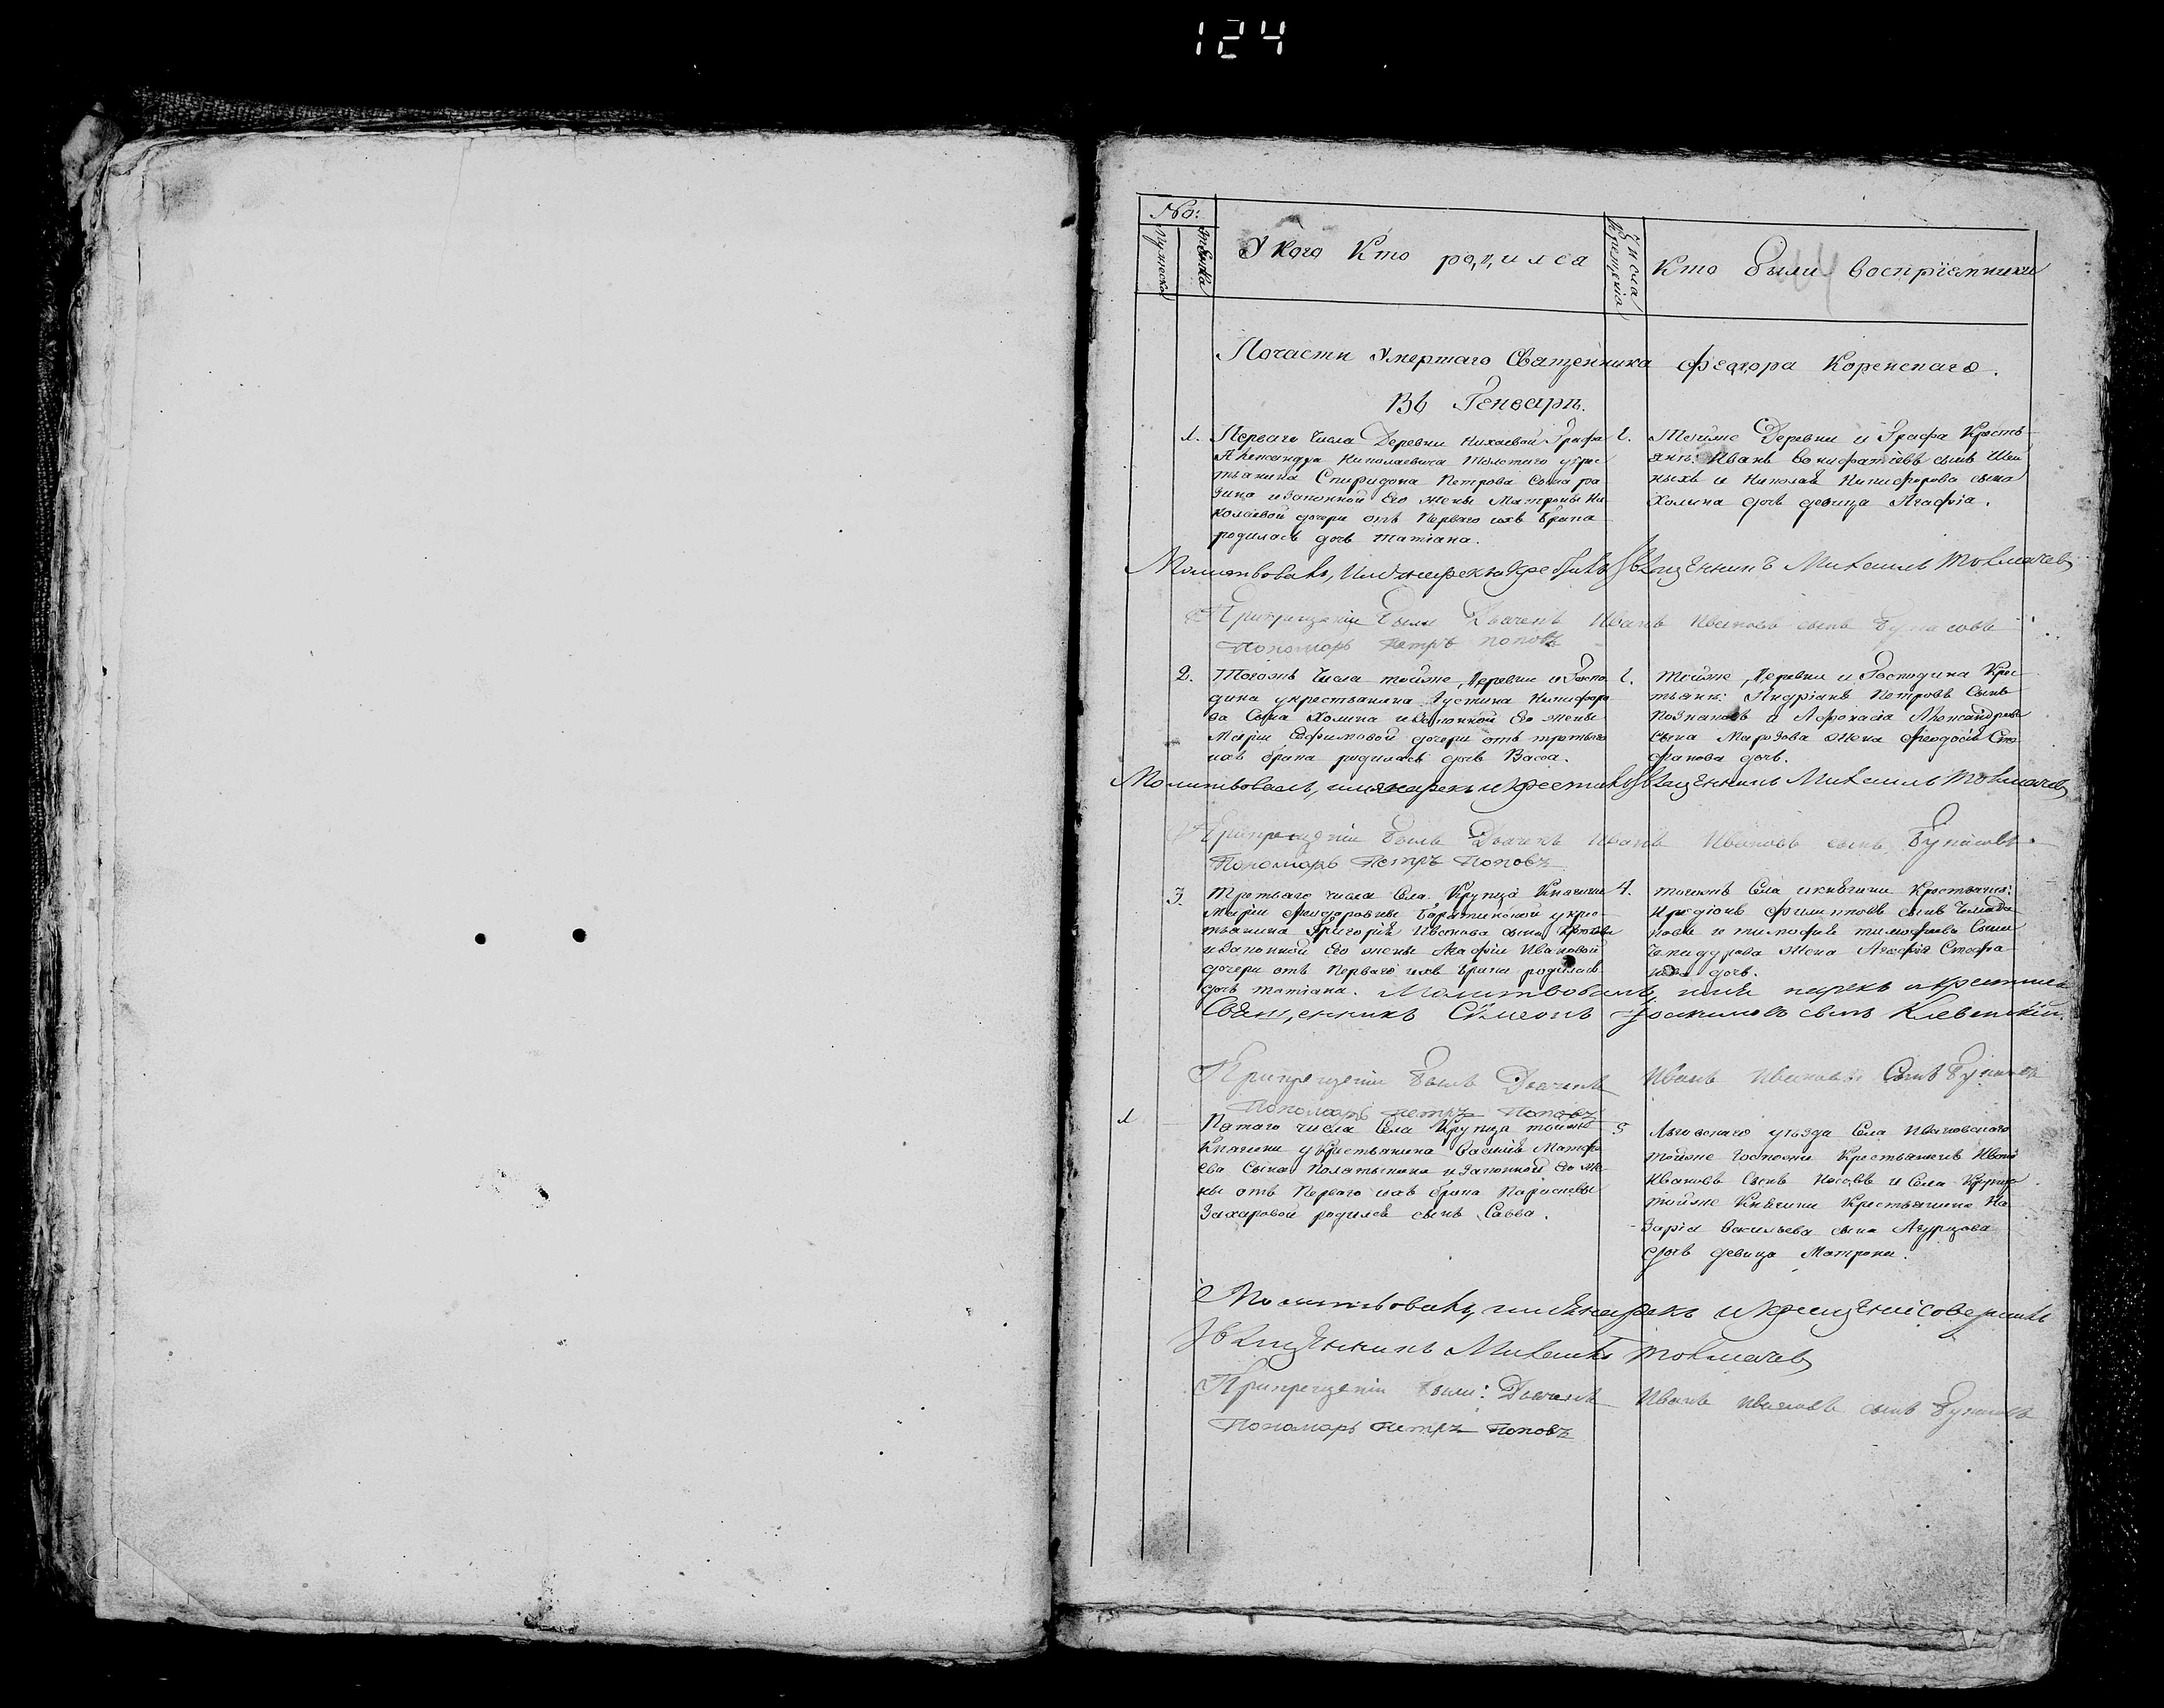 124
No:
Мужеска
Женска
У кого кто родился
Числа Крещенiя
Кто были воспрiемники
По части умершаго Священника Феодора Коренскаго.
Въ Генваре.
1. Перваго числа Деревни Графа
Александра Николаевича Толстого у крес
тьянина Спиридона Петрова сына
и законной Его жены Матроны Ни
колаевой дочери отъ Перваго ихъ брака
родилась дочь Татiана.
2. Тойже Деревни и Графа Кресть
янъ: Иванъ Вонифатiевъ сынъ
и Николая Никифорова сына
Холина дочь девица Агафiя.
Молитвовалъ, имя нарекъ и крестилъ Священникъ Михаилъ Толмачевъ
При крещенiи были Дьячекъ Иванъ Ивановъ сынъ
Пономарь Петръ Поповъ
2. Тогожъ числа тойже Деревни и Госпо
дина у крестьянина Устина Никифоро
ва сына Холина и законной Его жены
Марiи Ефимовой дочери отъ третьяго
ихъ брака родилась дочь Васса.
2. Тойже Деревни и Господина Крес
тьянъ: Андрiанъ Петровъ сынъ
Познаковъ и Афонасiя Александрова
сына Марозова жена Феодосiя Сте
фанова дочь.
Молитвовалъ, имя нарекъ и крестилъ Священникъ Михаилъ Толмачевъ
При крещенiи былъ Дьячекъ Иванъ Ивановъ сынъ
Пономарь Петръ Поповъ
3. Третьяго числа Села Крупца Княгини
Марiи Феодоровны Барятинской у крес
тьянина Григорiя сына
и законной Его жены Агафiи Ивановой
дочери отъ Перваго ихъ брака родилась
дочь Татiана.
4. Тогожъ Села и княгини Крестьяне:
Филиповъ сынъ
и Тимофея Тимофеева сына
жена Агафiя Стефа
нова дочь.
Молитвовалъ, имя нарекъ и крестилъ
Священникъ Симеонъ Iоакимовъ сынъ
При крещенiи былъ Дьячекъ Иванъ Ивановъ сынъ
Пономарь Петръ Поповъ
1 Пятаго числа Села Крупца тойже
Княгини у Крестьянина Василiя Матфе
ева сына и законной Его же
ны отъ Перваго ихъ брака Парасковьи
Захаровой родился сынъ Савва.
5 Льговскаго уезда Села Ивановскаго
тойже Госпожи Крестьянинъ Иванъ
Ивановъ сынъ и Села Крупца
тойже Княгини Крестьянина На
зарiя Васильева сына
дочь девица Матрона.
Молитвовалъ, имя нарекъ и крещенiе совершилъ
Священникъ Михаилъ Толмачевъ
При крещенiи были: Дьячекъ Иванъ Ивановъ сынъ
Пономарь Петръ Поповъ